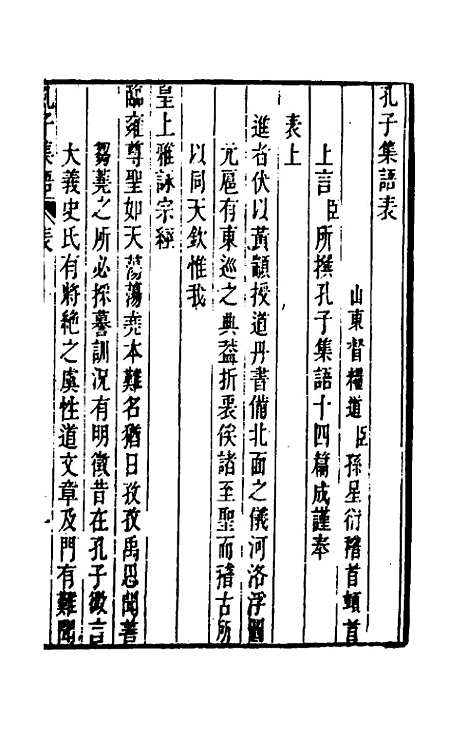 孔子集語表
山東督糧道臣孫星衍稽首頓首
上言臣所撰孔子集語十四篇成謹奉
表上
進者伏以黃顓授道丹書備北面之儀河洛浮圖
元扈有東巡之典葢折衷俟諸至聖而稽古所
以同天欽惟我
皇上雅詠宗經
臨雍尊聖如天蕩蕩堯本難名猶日孜孜禹思聞善
芻蕘之所必採謩訓況有明徵昔在孔子微言
大義史氏有將絶之虞性道文章及門有難聞
孔子集語 表 一